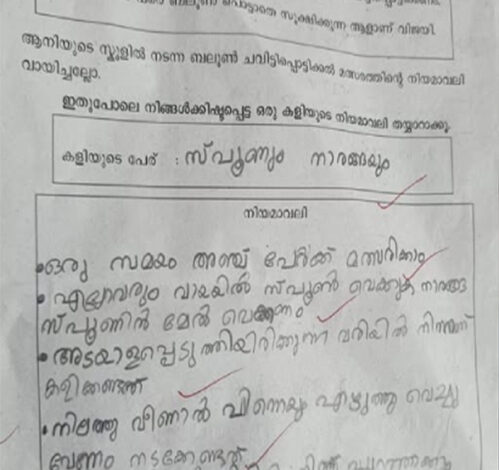 ബലൂൺ പൊട്ടാതെ സൂക്ഷിക്കുന്ന ആളാണ് വിജയി.
ആനിയുടെ സ്കൂളിൽ നടന്ന ബലൂൺ ചവിട്ടിപ്പൊട്ടിക്കൽ മത്സരത്തിന്റെ നിയമാവലി
വായിച്ചല്ലോ.
ഇതുപോലെ നിങ്ങൾക്കിഷ്ടപ്പെട്ട ഒരു കളിയുടെ നിയമാവലി തയ്യാറാക്കൂ.
കളിയുടെ പേര് : സ്പൂണും നാരങ്ങയും
നിയമാവലി
•ഒരു സമയം അഞ്ച് പേർക്ക് മത്സരിക്കാം
• എല്ലാവരും വായയിൽ സ്പൂൺ വെക്കുക നാരങ്ങ
സ്പൂണിൻ മേൽ വെക്കണം
• അടയാളപ്പെടുത്തിയിരിക്കുന്ന വരിയിൽ നിന്നാണ്
കളിക്കേണ്ടത്
•നിലത്തു വീണാൽ പിന്നെയും എടുത്തു വെച്ചു
വേണം നടക്കേണ്ടത്